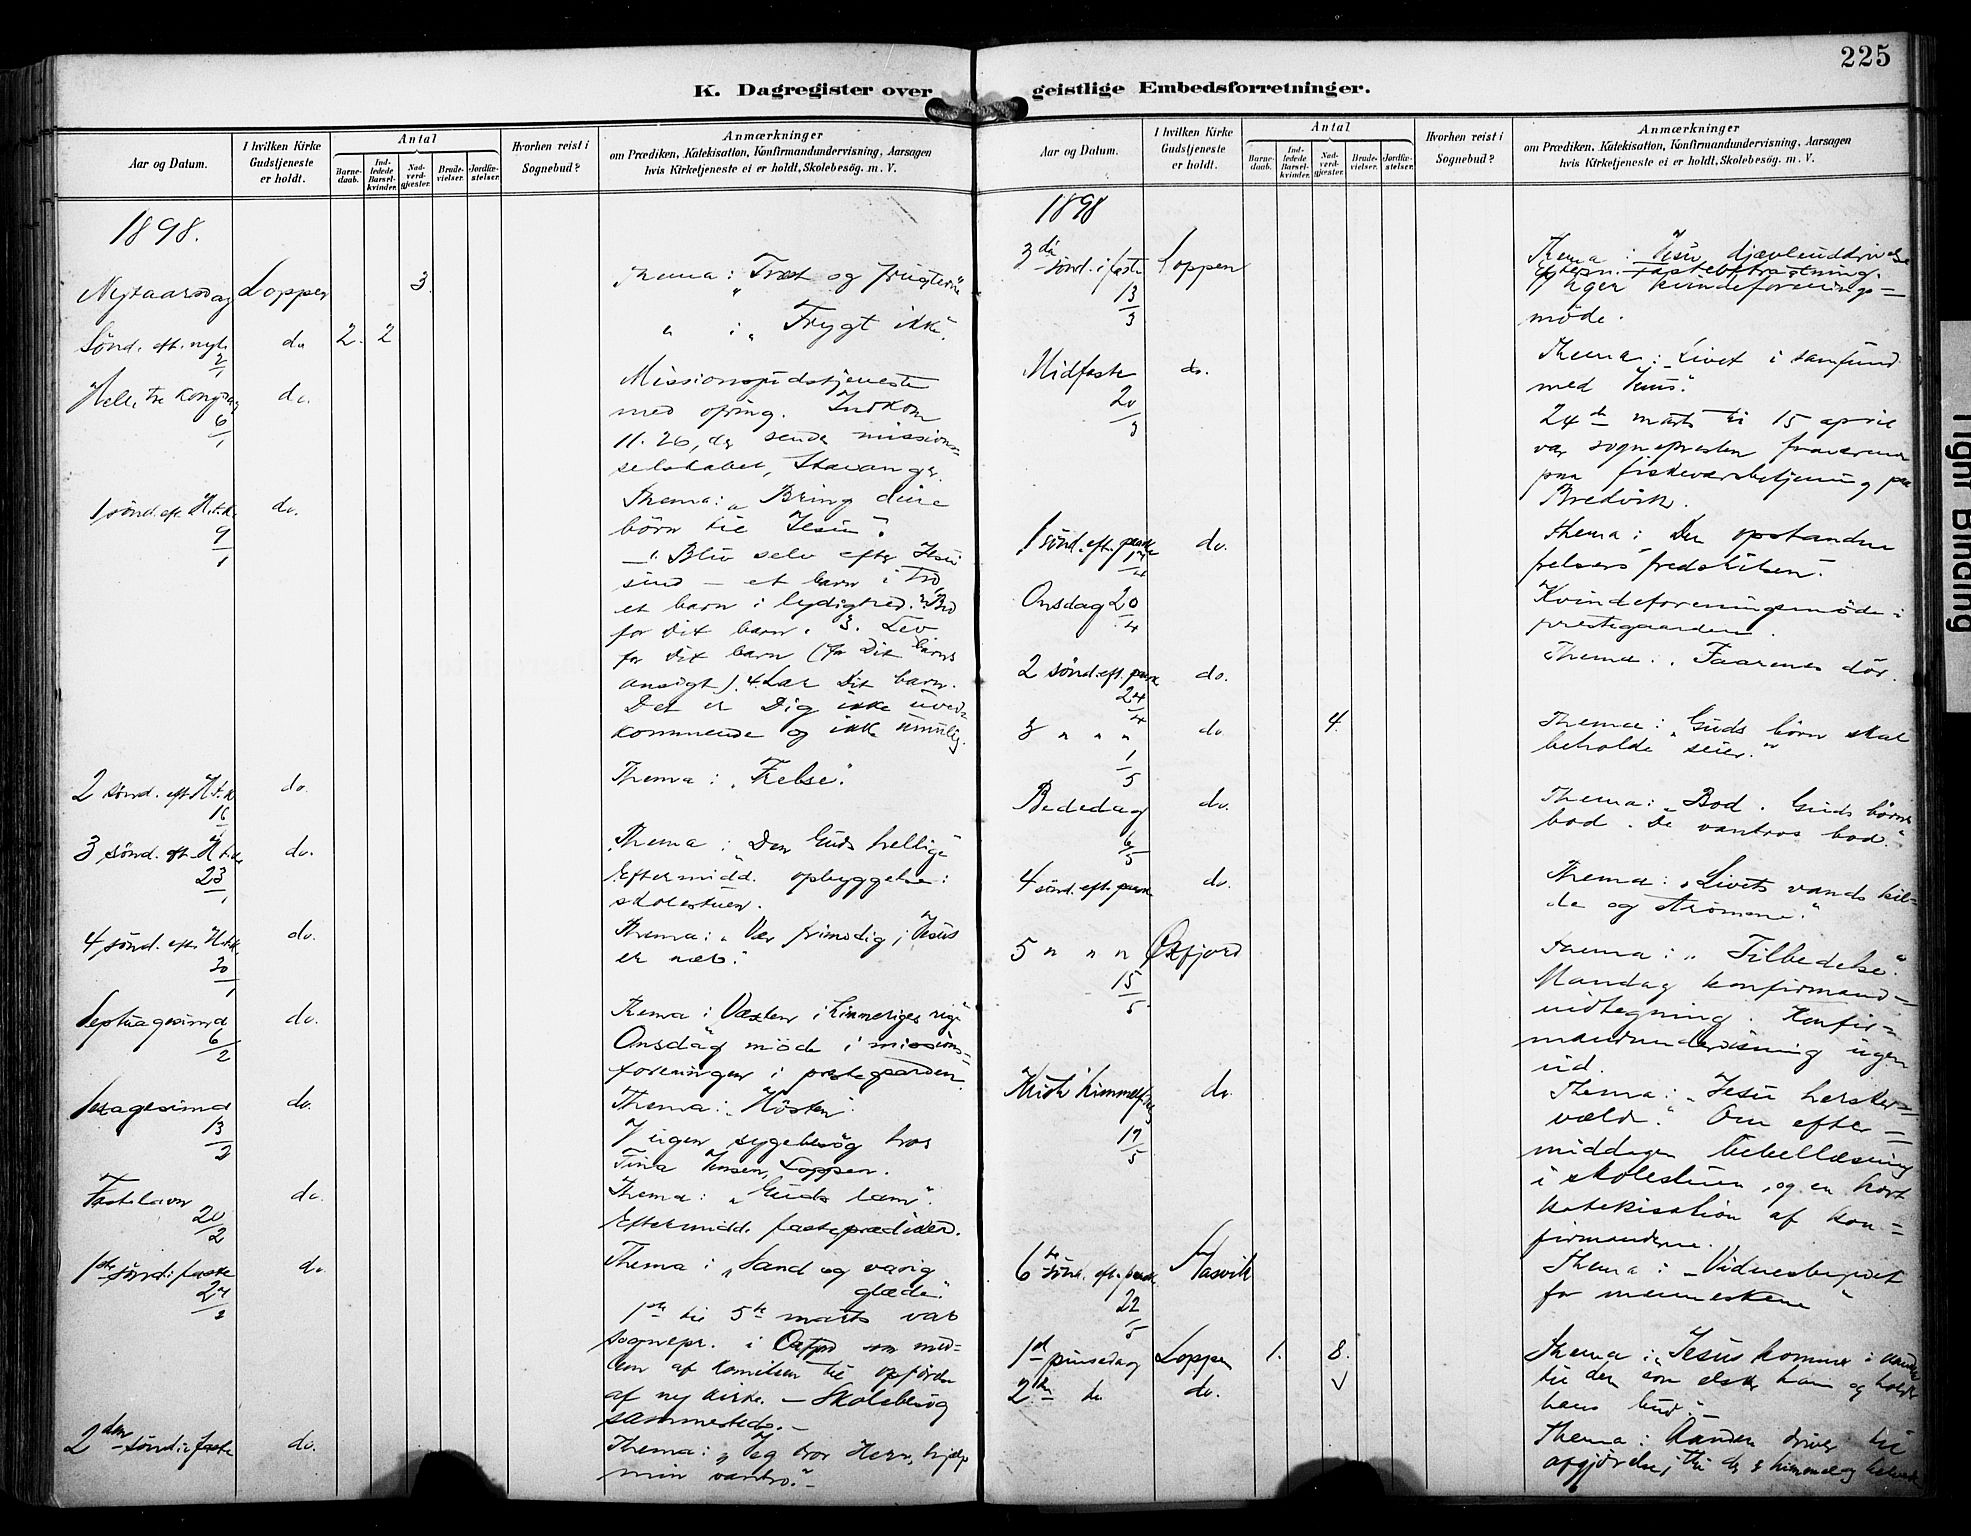 225
K. Dagregister over geistlige Embedsforretninger.
Aar og Datum.
I hvilken Kirke Gudstjeneste er holdt.
Antal
Barne-daab.
Ind-ledede Barsel-kvinder.
Nad-verd-gjester.
Brude-vielser.
Jordfæ-stelser.
Hvorhen reist i Sognebud?
Anmærkninger
om Prædiken, Katekisation, Konfirmandundervisning, Aarsagen
hvis Kirketjeneste ei er holdt, Skolebesög. m. V.
1898.
Nytaarsdag Loppen 3. Thema: "Træt og frugterne"
Sønd. eft. nyt. 2/1 do 2. 2 " : "Frygt ikke".
Hell. tre kongdag 6/1 do. Missionsgudstjeneste
med ofring. Indkom
11.26, der sendes missions-
selskabet, Stavanger.
1 sønd. eft. H.t.k. 9/1 do. Thema: "Bring dine
børn til Jesu".
1. Bliv selv efter Jesu
sind - et barn i tro,
et barn i lydighed. 2. Bed
for dit barn. 3. Lev
for dit barn (for dit barns
ansigt). 4. Lær dit barn.
Det er Dig ikke uved-
kommende og ikke umulig.
2 sønd. eft. H.t.k. 16/1 do. Thema: "Frelse".
3 sønd. eft. H.t.k. 23/1 do. Thema: Den Guds hellige
Eftermidd. opbyggelse i
skolestuen.
4 sønd. eft. H.t.k. 30/1 do. Thema: "Vær frimodig, Jesus
er nær".
Septuagesima 6/2 do. Thema: Væxten i himmeriges rige
Onsdag møde i missions-
foreningen i prestegaarden.
Sexagesima 13/2 do. Thema: "Høsten".
I ugen sygebesøg hos
Tina Jensen, Loppen.
Fastelavn 20/2 do. Thema: "Guds lam".
Eftermidd. fasteprædiken.
1ste sønd. i faste 27/2 do. Thema: "Sand og varig
glæde".
1ste til 5te marts var
sognepr. i Oxfjord som med-
lem af komiteen til opførelse
af ny kirke. - Skolebesøg
sammesteds. -
2den sønd. i faste do. Thema: "Jeg tror Herre, hjælp
min vantro." -
Aar og Datum.
I hvilken Kirke Gudstjeneste er holdt.
Antal
Barne-daab.
Ind-ledede Barsel-kvinder.
Nad-verd-gjester.
Brude-vielser.
Jordfæ-stelser.
Hvorhen reist i Sognebud?
Anmærkninger
om Prædiken, Katekisation, Konfirmandundervisning, Aarsagen
hvis Kirketjeneste ei er holdt, Skolebesög. m. V.
1898
3die sønd. i faste 13/3 Loppen Thema: Jesu djævleuddrivelse
Efterm. fastebetragtning.
I uger kvindeforenings-
møde.
Midfaste 20/3 do. Thema: Livet i samfund
med Jesus".
24de marts til 15 april
var sognepresten fraværende
paa fiskeværsbetjening paa
Bredvik.
1 sønd. eft. paaske 17/4 do. Thema: Den opstandne
frelsers fredshilsen".
Onsdag 20/4 Kvindeforeningsmøde i
prestegaarden.
2 sønd. eft. paask 24/4 do. Thema: "Faarenes dør.
3 " " " 1/5 do 4. Thema: "Guds børn skal
beholde seier."
Bededag 6/5 do. Thema: "Bod. Guds børns
bod. De vantros bod."
4 sønd. eft. paask do. Thema: "Livets vands kil-
de og strømme."
5 " " " 15/5 Øxfjord Thema: "Tilbedelse".
Mandag konfirmand-
indtegning. Konfir-
mandundervisning ugen
ud.
Kristi himmelf. dag 19/5 do. Thema: "Jesu hersker-
vælde." Om efter-
middagen bibellæsning
i skolestuen, og en kort
katekisation af kon-
firmanderne.
6te sønd. eft. paask. 22/5 Hasvik Thema: "Vidnesbyrdet
for menneskene"
1ste pinsedag Loppen 1. 8. Thema: "Jesus kommer i aanden
til den som elsker ham og holder
hans bud".
2den do do. Thema: Aanden driver til
afgjørelse, thi der er himmel og helvede
Tight Binding